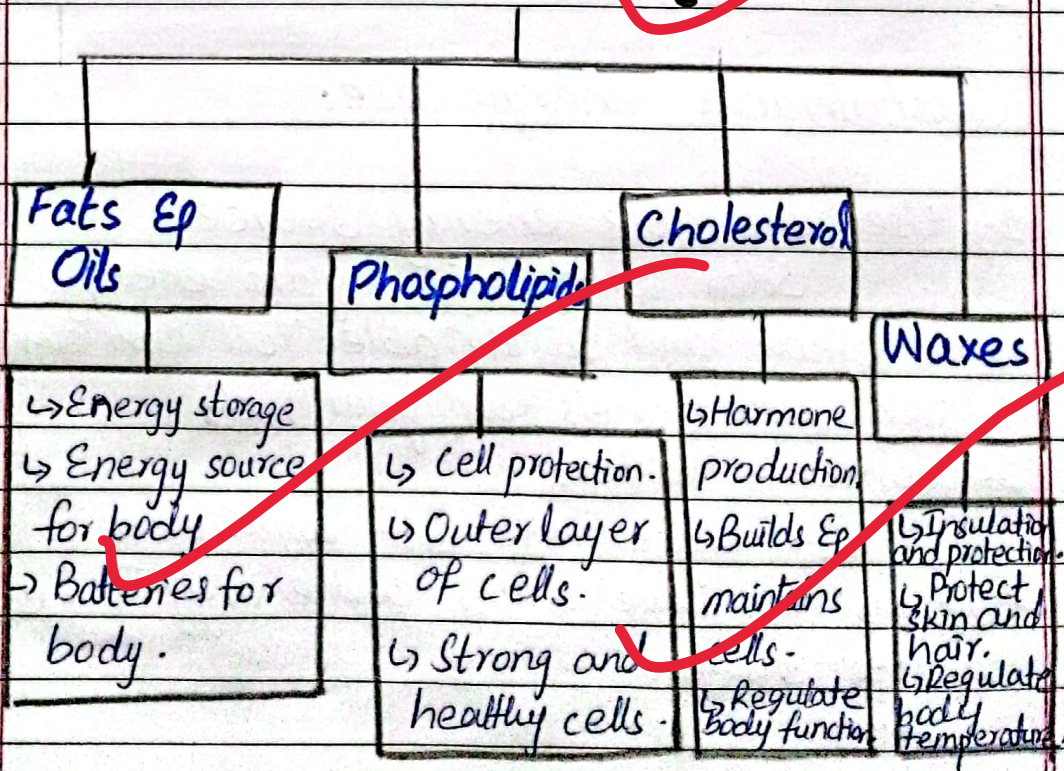 Fats &
Oils
Phospholipids
Cholesterol
Waxes
↳ Energy storage
↳ Energy source
for body
↳ Batteries for
body.
↳ Cell protection.
↳ Outer layer
of cells.
↳ Strong and
healthy cells.
↳ Harmone
production
↳ Builds &
maintains
cells.
↳ Regulate
body function
↳ Insulation
and protection.
↳ Protect
skin and
hair.
↳ Regulate
body
temperature.